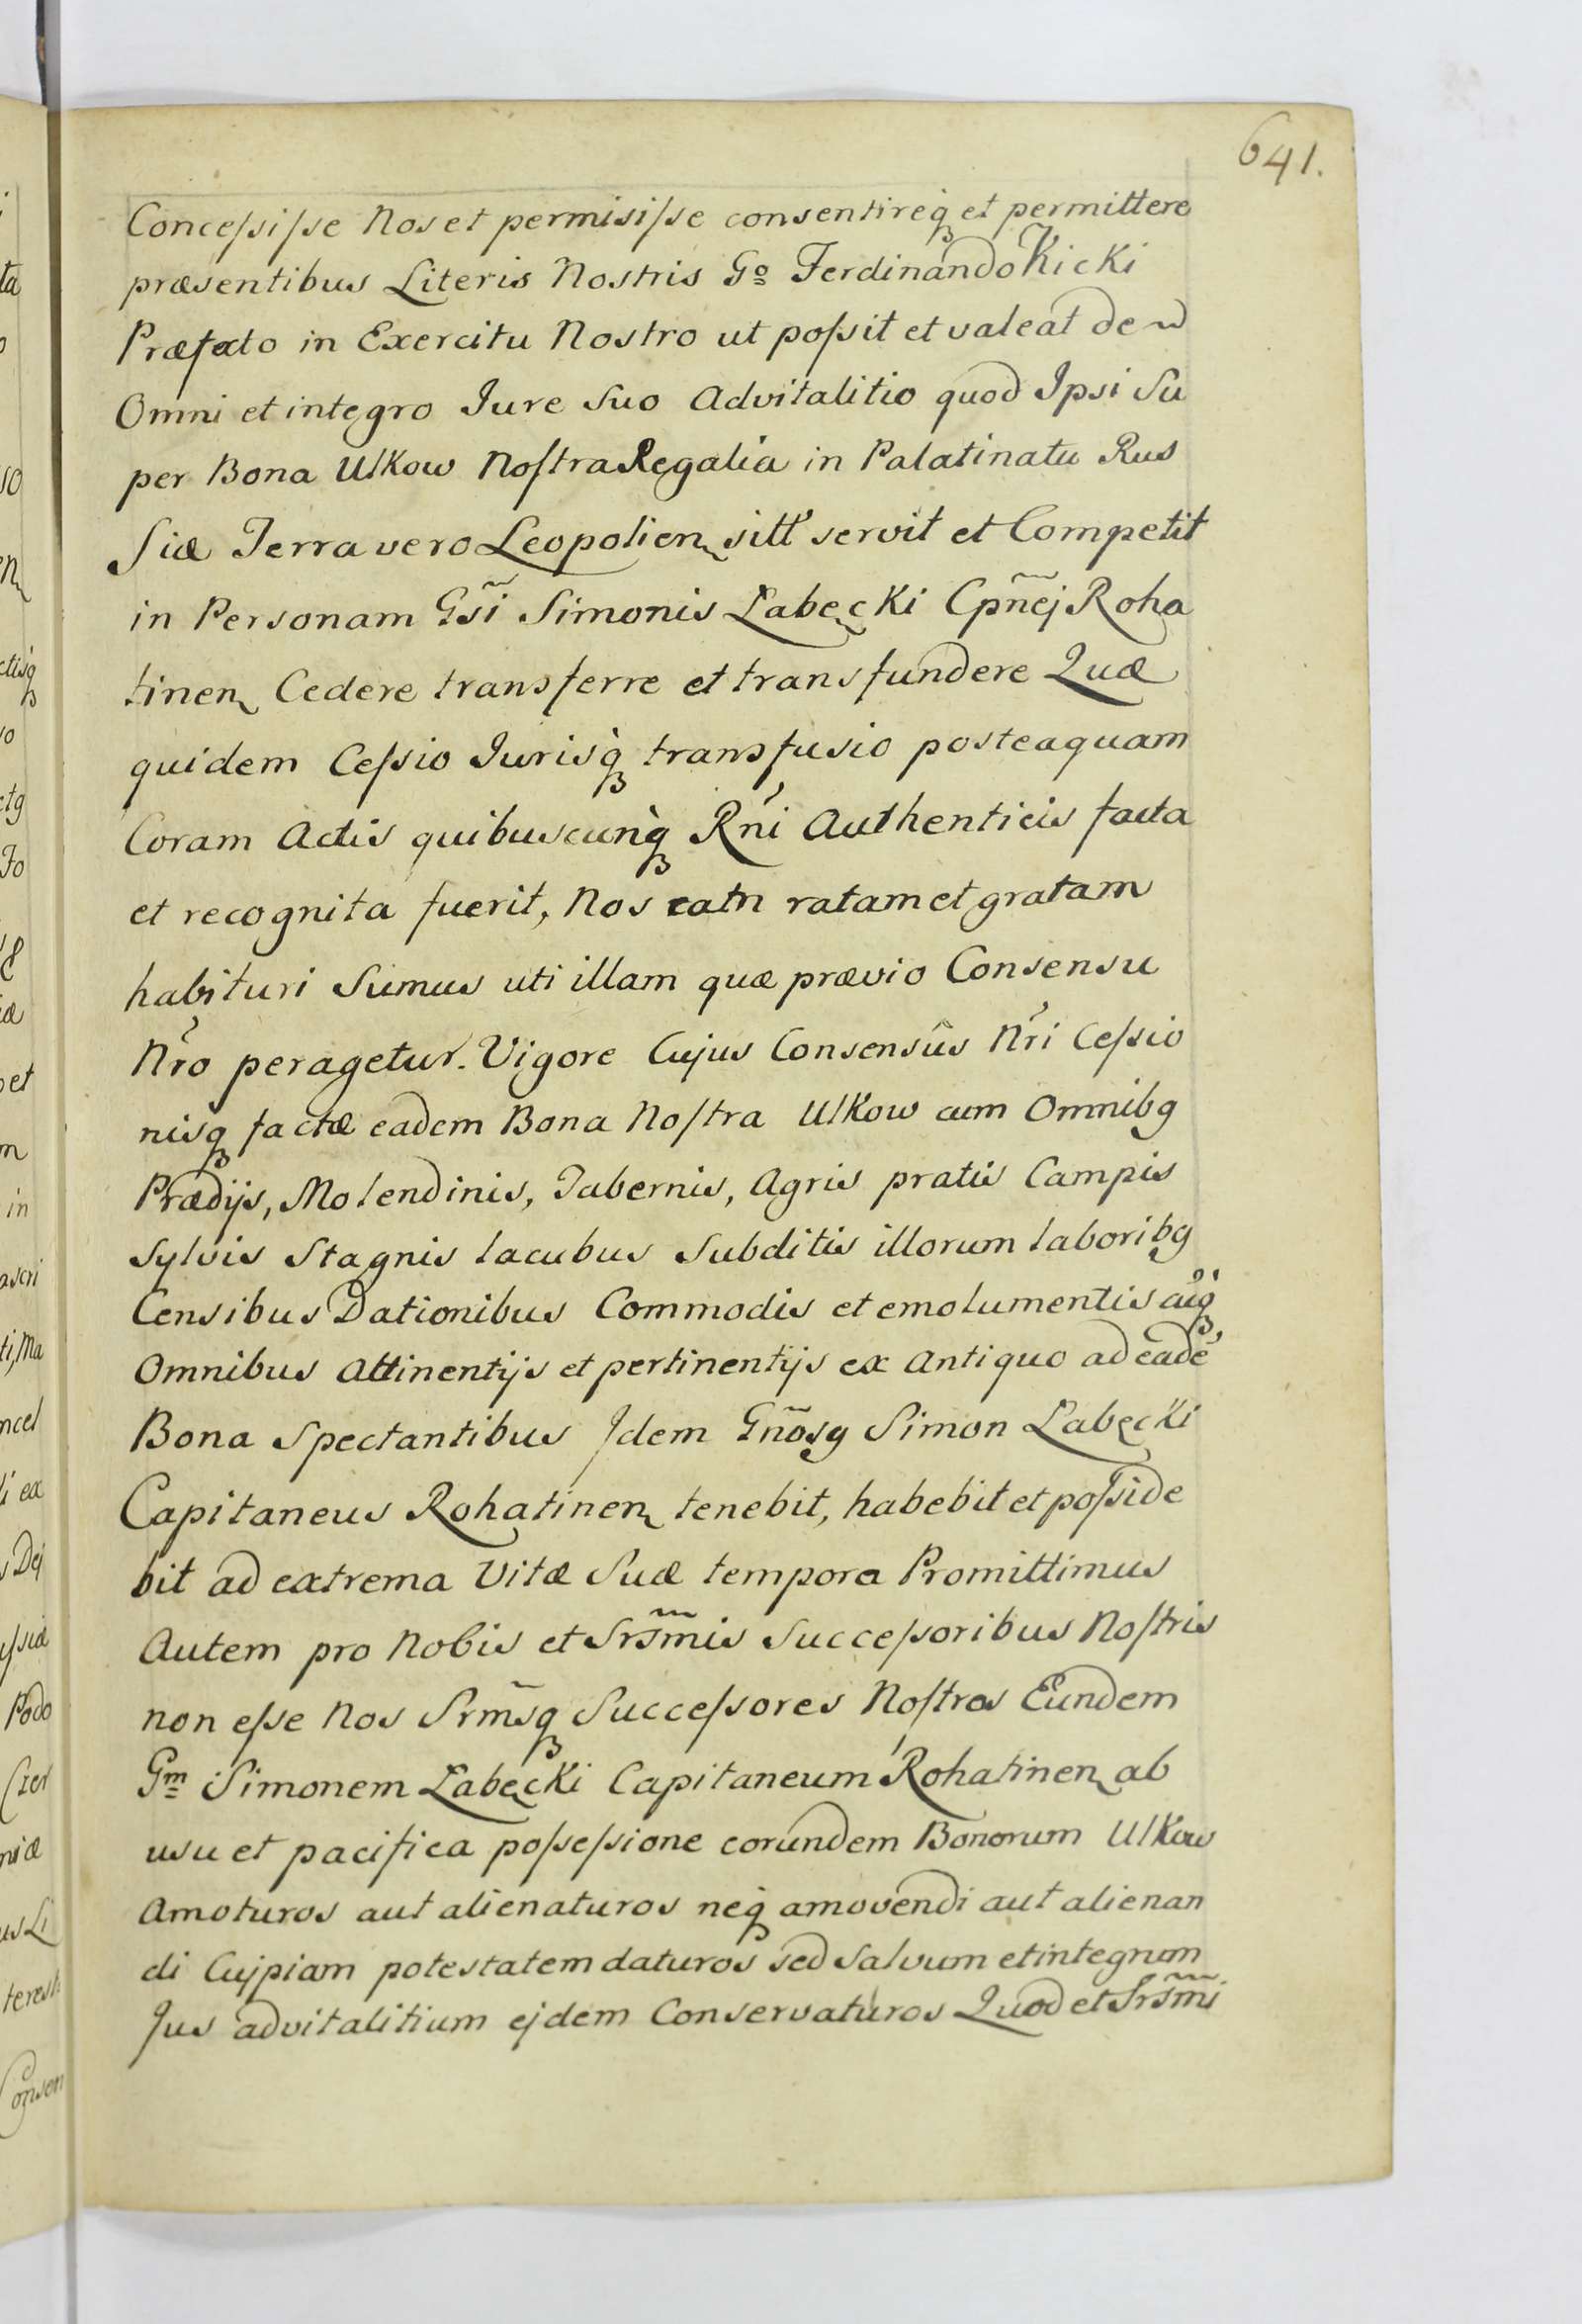 641.
Concessisse Nos et permisisse consentireq́ꝫ et permittere
præsentibus Literis Nostris Go Ferdinando Kicki
Præfato in Exercitu Nostro ut possit et valeat de
Omni et integro Jure Suo Advitalitio quod Ipsi Su
per Bona Ulkow Nostra Regalia in Palatinatu Rus
Siæ Terra vero Leopolien sitt' servit et Competit
in Personam Gsĩ Simonis Łabęcki Cpñej Roha
tinen Cedere transferre et transfundere Quæ
quidem Cessio Jurisq́ꝫ transfusio posteaquam
Coram Actis quibuscunq́ꝫ Rn̓i Authenticis facta
et recognita fuerit, Nos eam ratam et gratam
habituri Sumus uti illam quæ prævio Consensu
Nr̓o peragetur. Vigore Cujus Consensûs Nr̓i Cessio
nisqꝫ factæ eadem Bona Nostra Ulkow cum Omnibg
Prædijs, Molendinis, Tabernis, Agris pratis Campis
Sylvis Stagnis lacubus Subditis illorum laboribg
Censibus Dationibus Commodis et emolumentis aı̊q́ꝫ
Omnibus Attinentijs et pertinentijs ex Antiquo ad eadē
Bona Spectantibus Jdem Gñosg Simon Łabęcki
Capitaneus Rohatinen tenebit, habebit et posside
bit ad extrema Vitæ Suæ tempora Promittimus
Autem pro Nobis et Srs̃mis Successoribus Nostris
non esse Nos Srm̃sqꝫ Successores Nostros Eundem
Gm Simonem Łabęcki Capitaneum Rohatinen ab
usu et pacifica possessione eorundem Bonorum Ulkow
Amoturos aut alienaturos neq́ꝫ amovendi aut alienan
di Cujpiam potestatem daturos sed Salvum et integrum
Jus advitalitium ejdem Conservaturos Quod et Srs̃mi